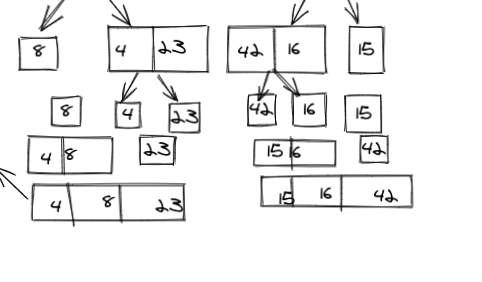 8 4 23 42 16 15
8 4 23 42 16 15
4 8 23 15 16 42
4 8 23 15 16 42